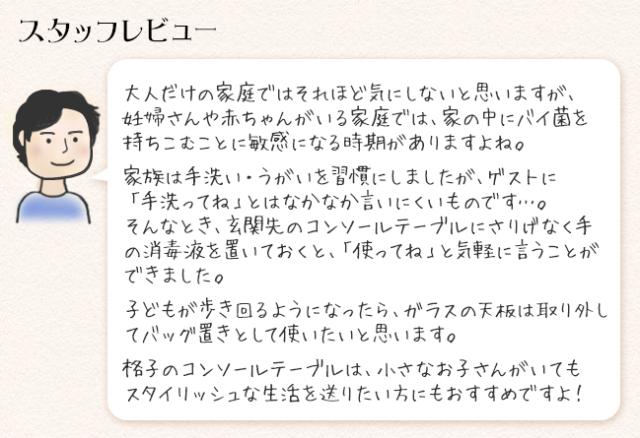 スタッフレビュー
大人だけの家庭ではそれほど気にしないと思いますが、
妊婦さんや赤ちゃんがいる家庭では、家の中にバイ菌を
持ちこむことに敏感になる時期がありますよね。
家族は手洗い・うがいを習慣にしましたが、ゲストに
「手洗ってね」とはなかなか言いにくいものです…。
そんなとき、玄関先のコンソールテーブルにさりげなく手
の消毒液を置いておくと、「使ってね」と気軽に言うことが
できました。
子どもが歩き回るようになったら、ガラスの天板は取り外し
てバッグ置きとして使いたいと思います。
格子のコンソールテーブルは、小さなお子さんがいても
スタイリッシュな生活を送りたい方にもおすすめですよ！